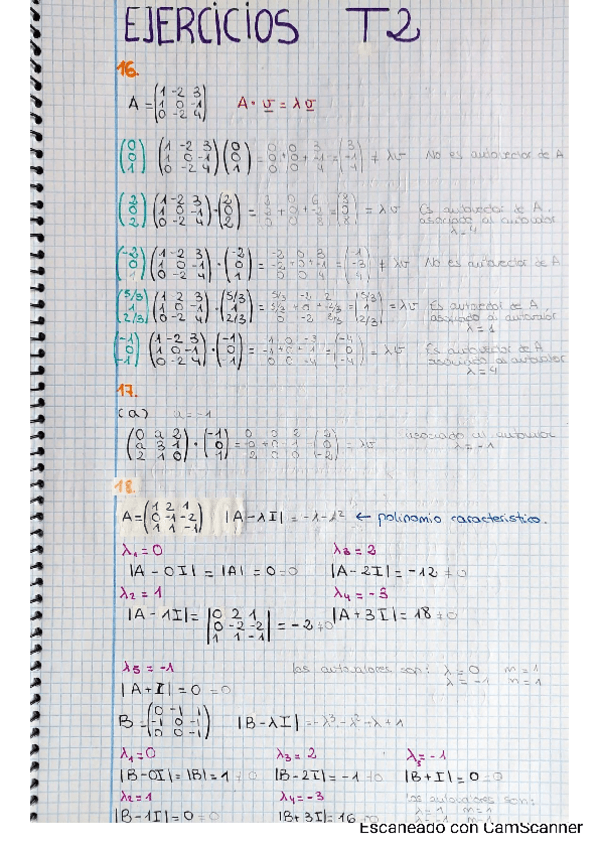 EJERCICIOS T2
16.
A = (1 -2 3 / 1 0 -1 / 0 -2 4) A · v = λ v
(0 / 0 / 1) (1 -2 3 / 1 0 -1 / 0 -2 4) (0 / 0 / 1) = ≠ λv No es autovector de A
(2 / 0 / 2) (1 -2 3 / 1 0 -1 / 0 -2 4) · (2 / 0 / 2) = = λv Es autovector de A
asociado al autovalor
λ = 4
(-2 / 0 / 1) (1 -2 3 / 1 0 -1 / 0 -2 4) · (-2 / 0 / 1) = ≠ λv No es autovector de A
(5/3 / 1 / 2/3) (1 2 3 / 1 0 -1 / 0 -2 4) · (5/3 / 1 / 2/3) = (5/3 / 1 / 2/3) = λv Es autovector de A
asociado al autovalor
λ = 1
(-1 / 0 / -1) (1 -2 3 / 1 0 -1 / 0 -2 4) · (-1 / 0 / -1) = = λv Es autovector de A
asociado al autovalor
λ = 4
17.
(a) a = -1
(0 a 2 / a 3 1 / 2 1 0) · (-1 / 0 / 1) = = λv asociado al autovalor
λ = -1
18.
A = (1 2 1 / 0 -1 -2 / 1 1 -1) |A - λI| = ← polinomio característico.
λ₁ = 0 λ₃ = 2
|A - 0I| = |A| = 0 = 0 |A - 2I| = -12 ≠ 0
λ₂ = 1 λ₄ = -3
|A - 1I| = |0 2 1 / 0 -2 -2 / 1 1 -1| = -2 ≠ 0 |A + 3I| = 18 ≠ 0
λ₅ = -1 los autovalores son: λ = 0 m = 1
λ = -1 m = 1
|A + I| = 0 = 0
B = (0 -1 1 / -1 0 -1 / 0 0 -1) |B - λI| = -λ³ - λ² + λ + 1
λ₁ = 0 λ₃ = 2 λ₅ = -1
|B - 0I| = |B| = 1 ≠ 0 |B - 2I| = -1 ≠ 0 |B + I| = 0 = 0
λ₂ = 1 λ₄ = -3 los autovalores son:
|B - 1I| = 0 = 0 |B + 3I| = 16
Escaneado con CamScanner